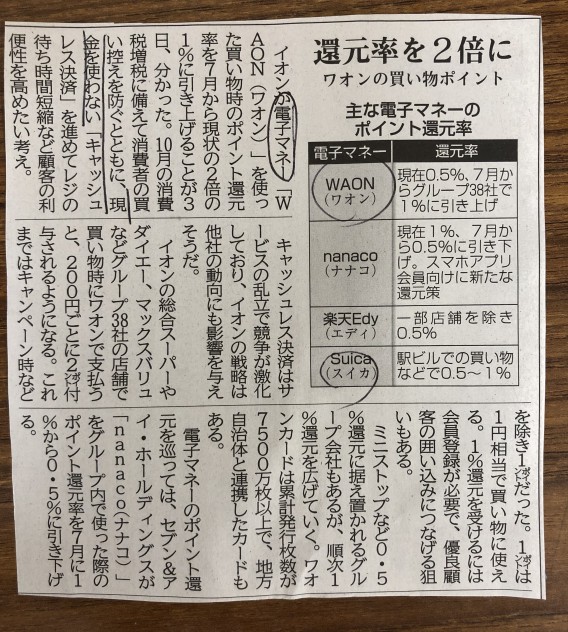 還元率を2倍に
ワオンの買い物ポイント
主な電子マネーの
ポイント還元率
電子マネー 還元率
WAON
(ワオン)
現在0.5%、7月か
らグループ38社で
1%に引き上げ
nanaco
(ナナコ)
現在1%、7月か
ら0.5%に引き下
げ。スマホアプリ
会員向けに新たな
還元策
楽天Edy
(エディ)
一部店舗を除き
0.5%
Suica
(スイカ)
駅ビルでの買い物
などで0.5～1%
イオンが電子マネー「W
AON(ワオン)」を使っ
た買い物時のポイント還元
率を7月から現状の2倍の
1%に引き上げることが3
日、分かった。10月の消費
税増税に備えて消費者の買
い控えを防ぐとともに、現
金を使わない「キャッシュ
レス決済」を進めてレジの
待ち時間短縮など顧客の利
便性を高めたい考え。
キャッシュレス決済はサ
ービスの乱立で競争が激化
しており、イオンの戦略は
他社の動向にも影響を与え
そうだ。
イオンの総合スーパーや
ダイエー、マックスバリュ
などグループ38社の店舗で
買い物時にワオンで支払う
と、200円ごとに2㌽付
与されるようになる。これ
まではキャンペーン時など
を除き1㌽だった。1㌽は
1円相当で買い物に使え
る。1%還元を受けるには
会員登録が必要で、優良顧
客の囲い込みにつなげる狙
いもある。
ミニストップなど0・5
%還元に据え置かれるグル
ープ会社もあるが、順次1
%還元を広げていく。ワオ
ンカードは累計発行枚数が
7500万枚以上で、地方
自治体と連携したカードも
ある。
電子マネーのポイント還
元を巡っては、セブン&ア
イ・ホールディングスが
「nanaco(ナナコ)」
をグループ内で使った際の
ポイント還元率を7月に1
%から0・5%に引き下げ
る。